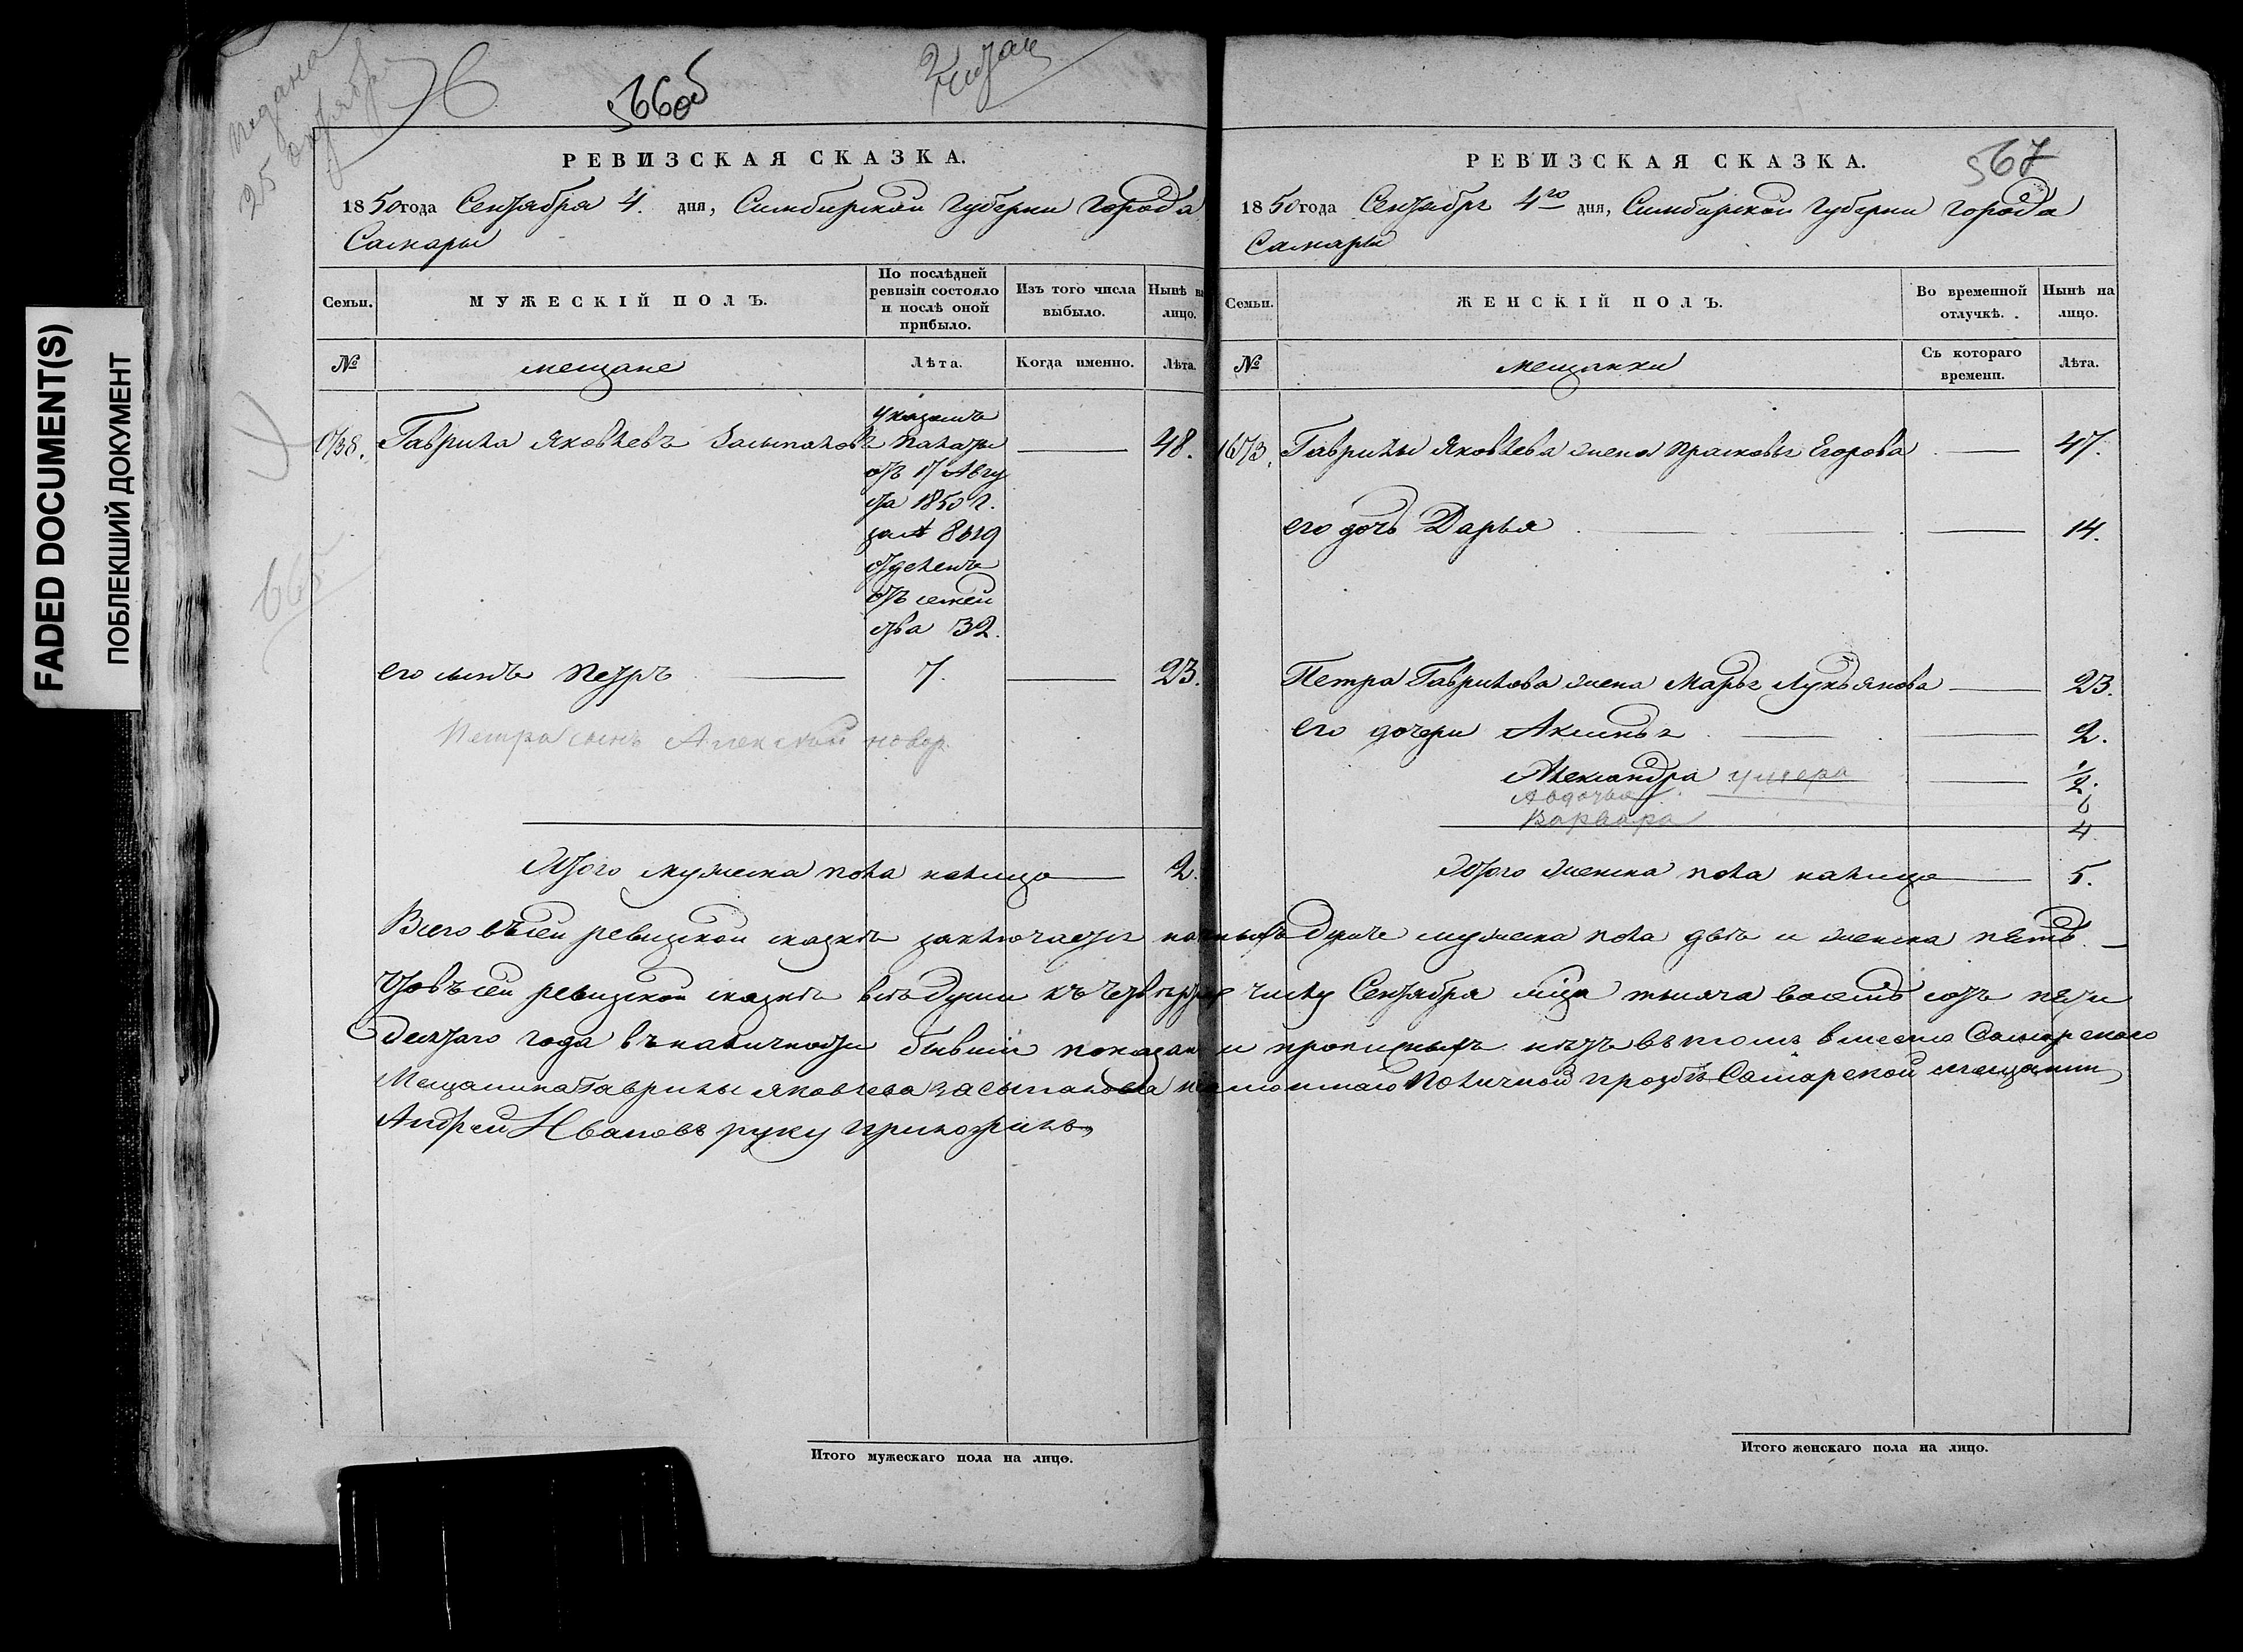 FADED DOCUMENT(S)
ПОБЛЕКШИЙ ДОКУМЕНТ
подана
25 октября
566об
РЕВИЗСКАЯ СКАЗКА.
1850 года Сентября 4. дня, Симбирской Губернии города
Самары
Семьи.
МУЖЕСКІЙ ПОЛЪ.
По послѣдней ревизіи состояло и послѣ оной прибыло.
Изъ того числа выбыло.
Нынѣ на лицо.
№
мещане
Лѣта.
Когда именно.
Лѣта.
Гаврила Яковлевъ Засыпаковъ
48.
указомъ
палаты
отъ 17 Авгу
ста 1850 г.
за № 8619
отделенъ
отъ семей
ства 32.
его сынъ Петръ 7. 23.
Петра сынъ Алексей новор.
Итого мужеска пола налицо 2.
567
РЕВИЗСКАЯ СКАЗКА.
1850 года Сентября 4го дня, Симбирской Губернии города
Самары
Семьи.
ЖЕНСКІЙ ПОЛЪ.
Во временной отлучкѣ.
Нынѣ на лицо.
№
мещанки
Съ котораго времени.
Лѣта.
Гаврилы Яковлева жена Прасковья Егорова 47.
его дочь Дарья 14.
Петра Гаврилова жена Марья Лукьянова 23.
его дочери Аксинья 2.
Александра умерла 1/2.
Авдотья 6
Варвара 4
Итого женска пола налицо 5.
Всего въ сей ревизской сказкѣ заключается наличныхъ душъ мужеска пола двѣ и женска пять.
Что въ сей ревизской сказкѣ всѣ души къ четвертому числу Сентября мѣсяца тысяча восемь сотъ пяти
десятаго года въ наличности бывшіи показаны и прописныхъ нѣтъ въ томъ вместо Самарского
Мещанина Гаврилы Яковлева Засыпакова по личной прозбѣ Самарской мещанин
Андрей Ивановъ руку приложилъ
Итого мужескаго пола на лицо.
Итого женскаго пола на лицо.